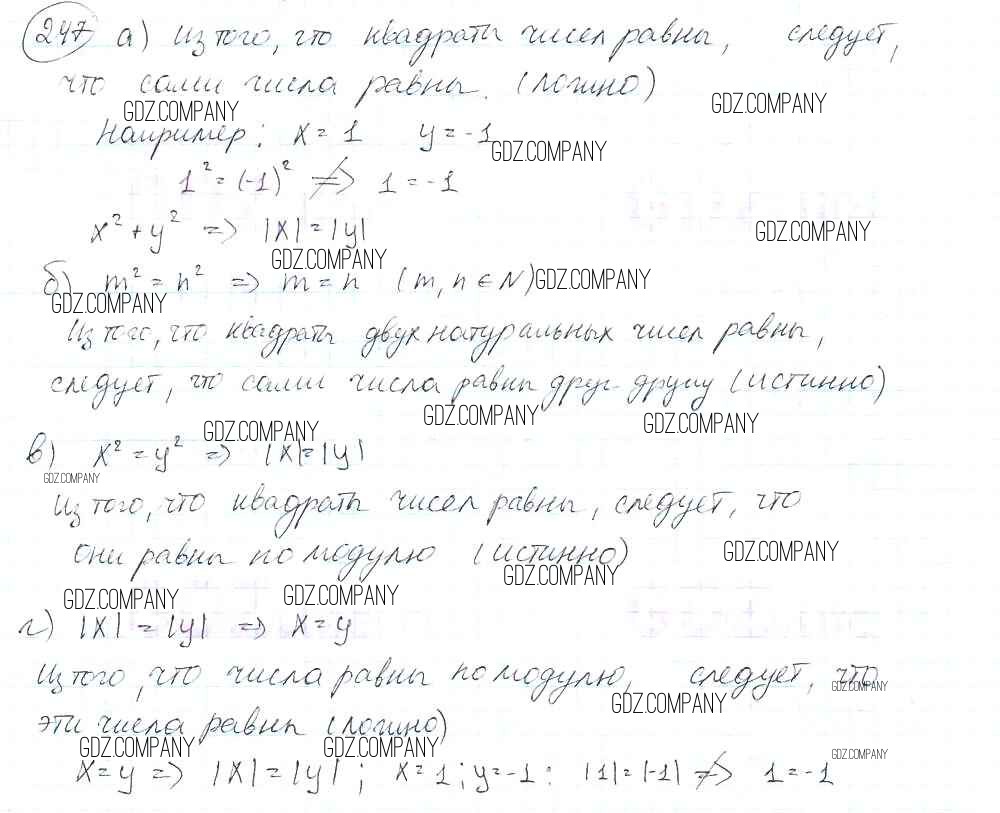 247 а) Из того, что квадраты чисел равны, следует,
что сами числа равны. (ложно)
GDZ.COMPANY GDZ.COMPANY
Например: x = 1 y = -1
GDZ.COMPANY
1² = (-1)² ≠> 1 = -1
x² + y² => |x| = |y|
GDZ.COMPANY
GDZ.COMPANY
б) m² = n² => m = n (m, n ∈ N) GDZ.COMPANY
GDZ.COMPANY
Из того, что квадраты двух натуральных чисел равны,
следует, что сами числа равны друг другу (истинно)
GDZ.COMPANY GDZ.COMPANY GDZ.COMPANY
в) x² = y² => |x| = |y|
GDZ.COMPANY
Из того, что квадраты чисел равны, следует, что
они равны по модулю (истинно) GDZ.COMPANY
GDZ.COMPANY
GDZ.COMPANY GDZ.COMPANY
г) |x| = |y| => x = y
Из того, что числа равны по модулю, следует, что
GDZ.COMPANY
GDZ.COMPANY
эти числа равны (ложно)
GDZ.COMPANY GDZ.COMPANY GDZ.COMPANY
x = y => |x| = |y| ; x = 1 ; y = -1 : |1| = |-1| ≠> 1 = -1